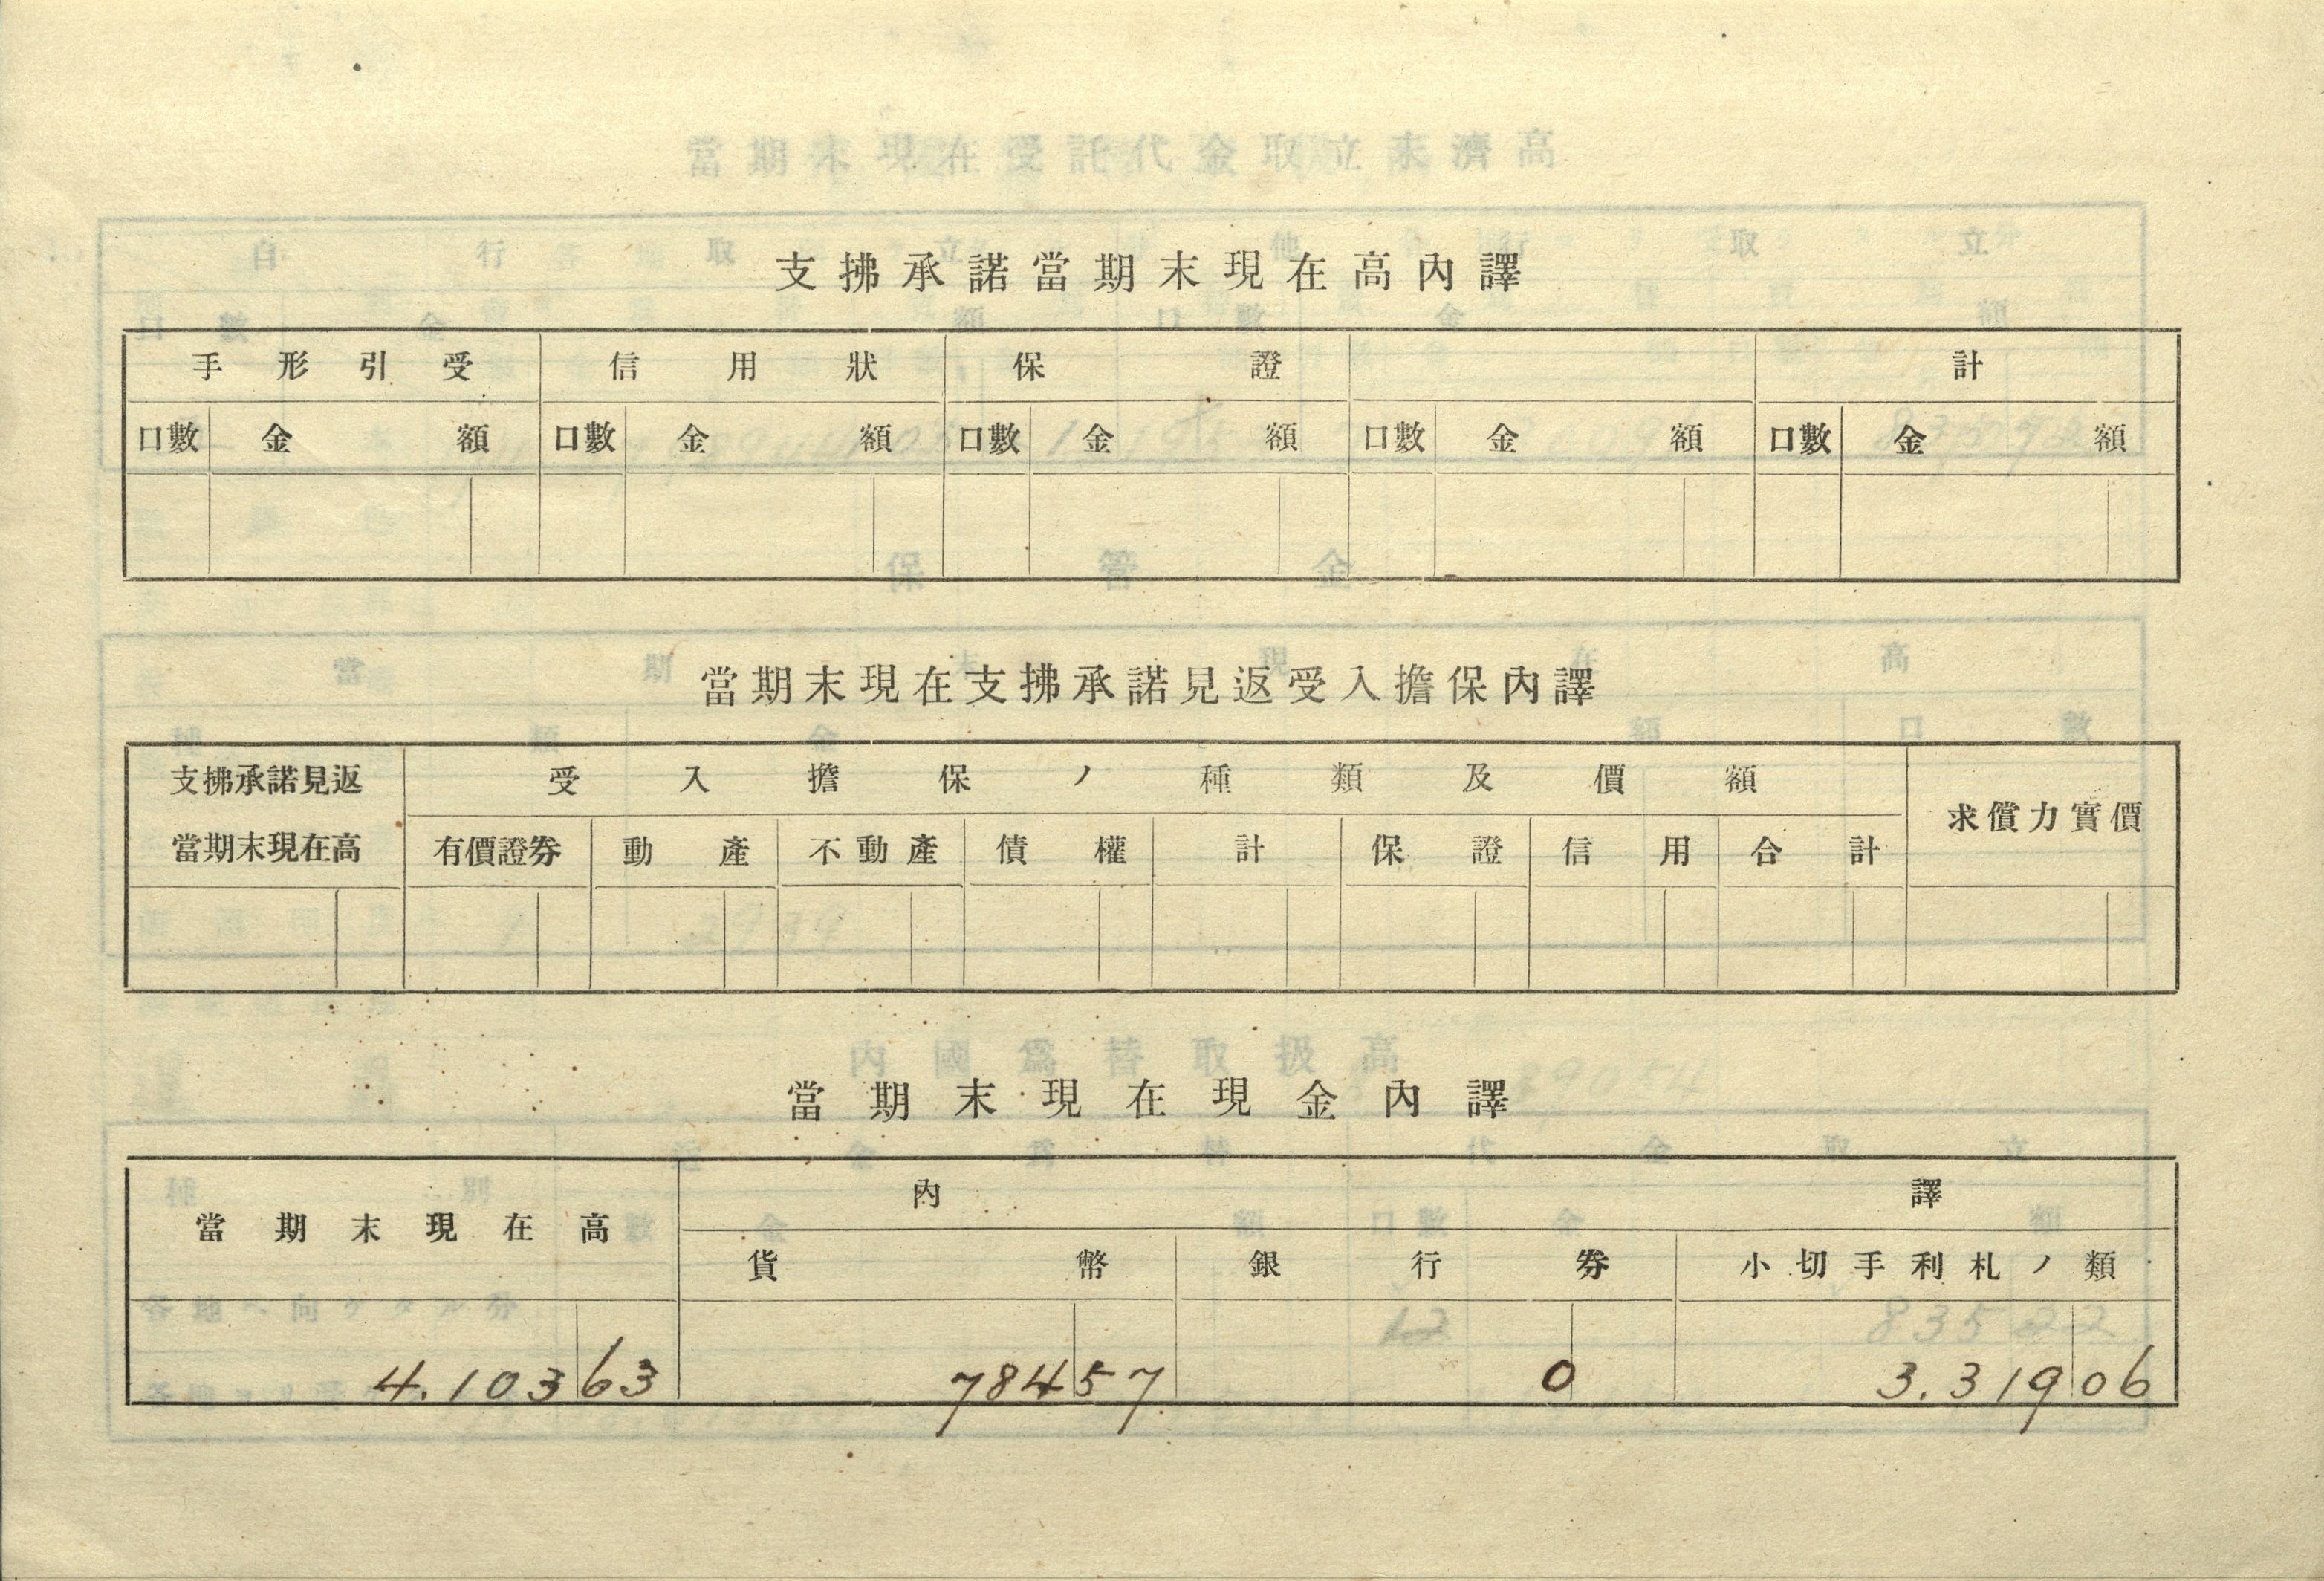 支拂承諾當期末現在高內譯
手形引受 信用狀 保證 計
口數 金額 口數 金額 口數 金額 口數 金額 口數 金額
當期末現在支拂承諾見返受入擔保內譯
支拂承諾見返當期末現在高 受入擔保ノ種類及價額 求償力實價
有價證券 動產 不動產 債權 計 保證 信用 合計
當期末現在現金內譯
當期末現在高 內譯
貨幣 銀行券 小切手利札ノ類
4.103 63 784 57 0 3.319 06